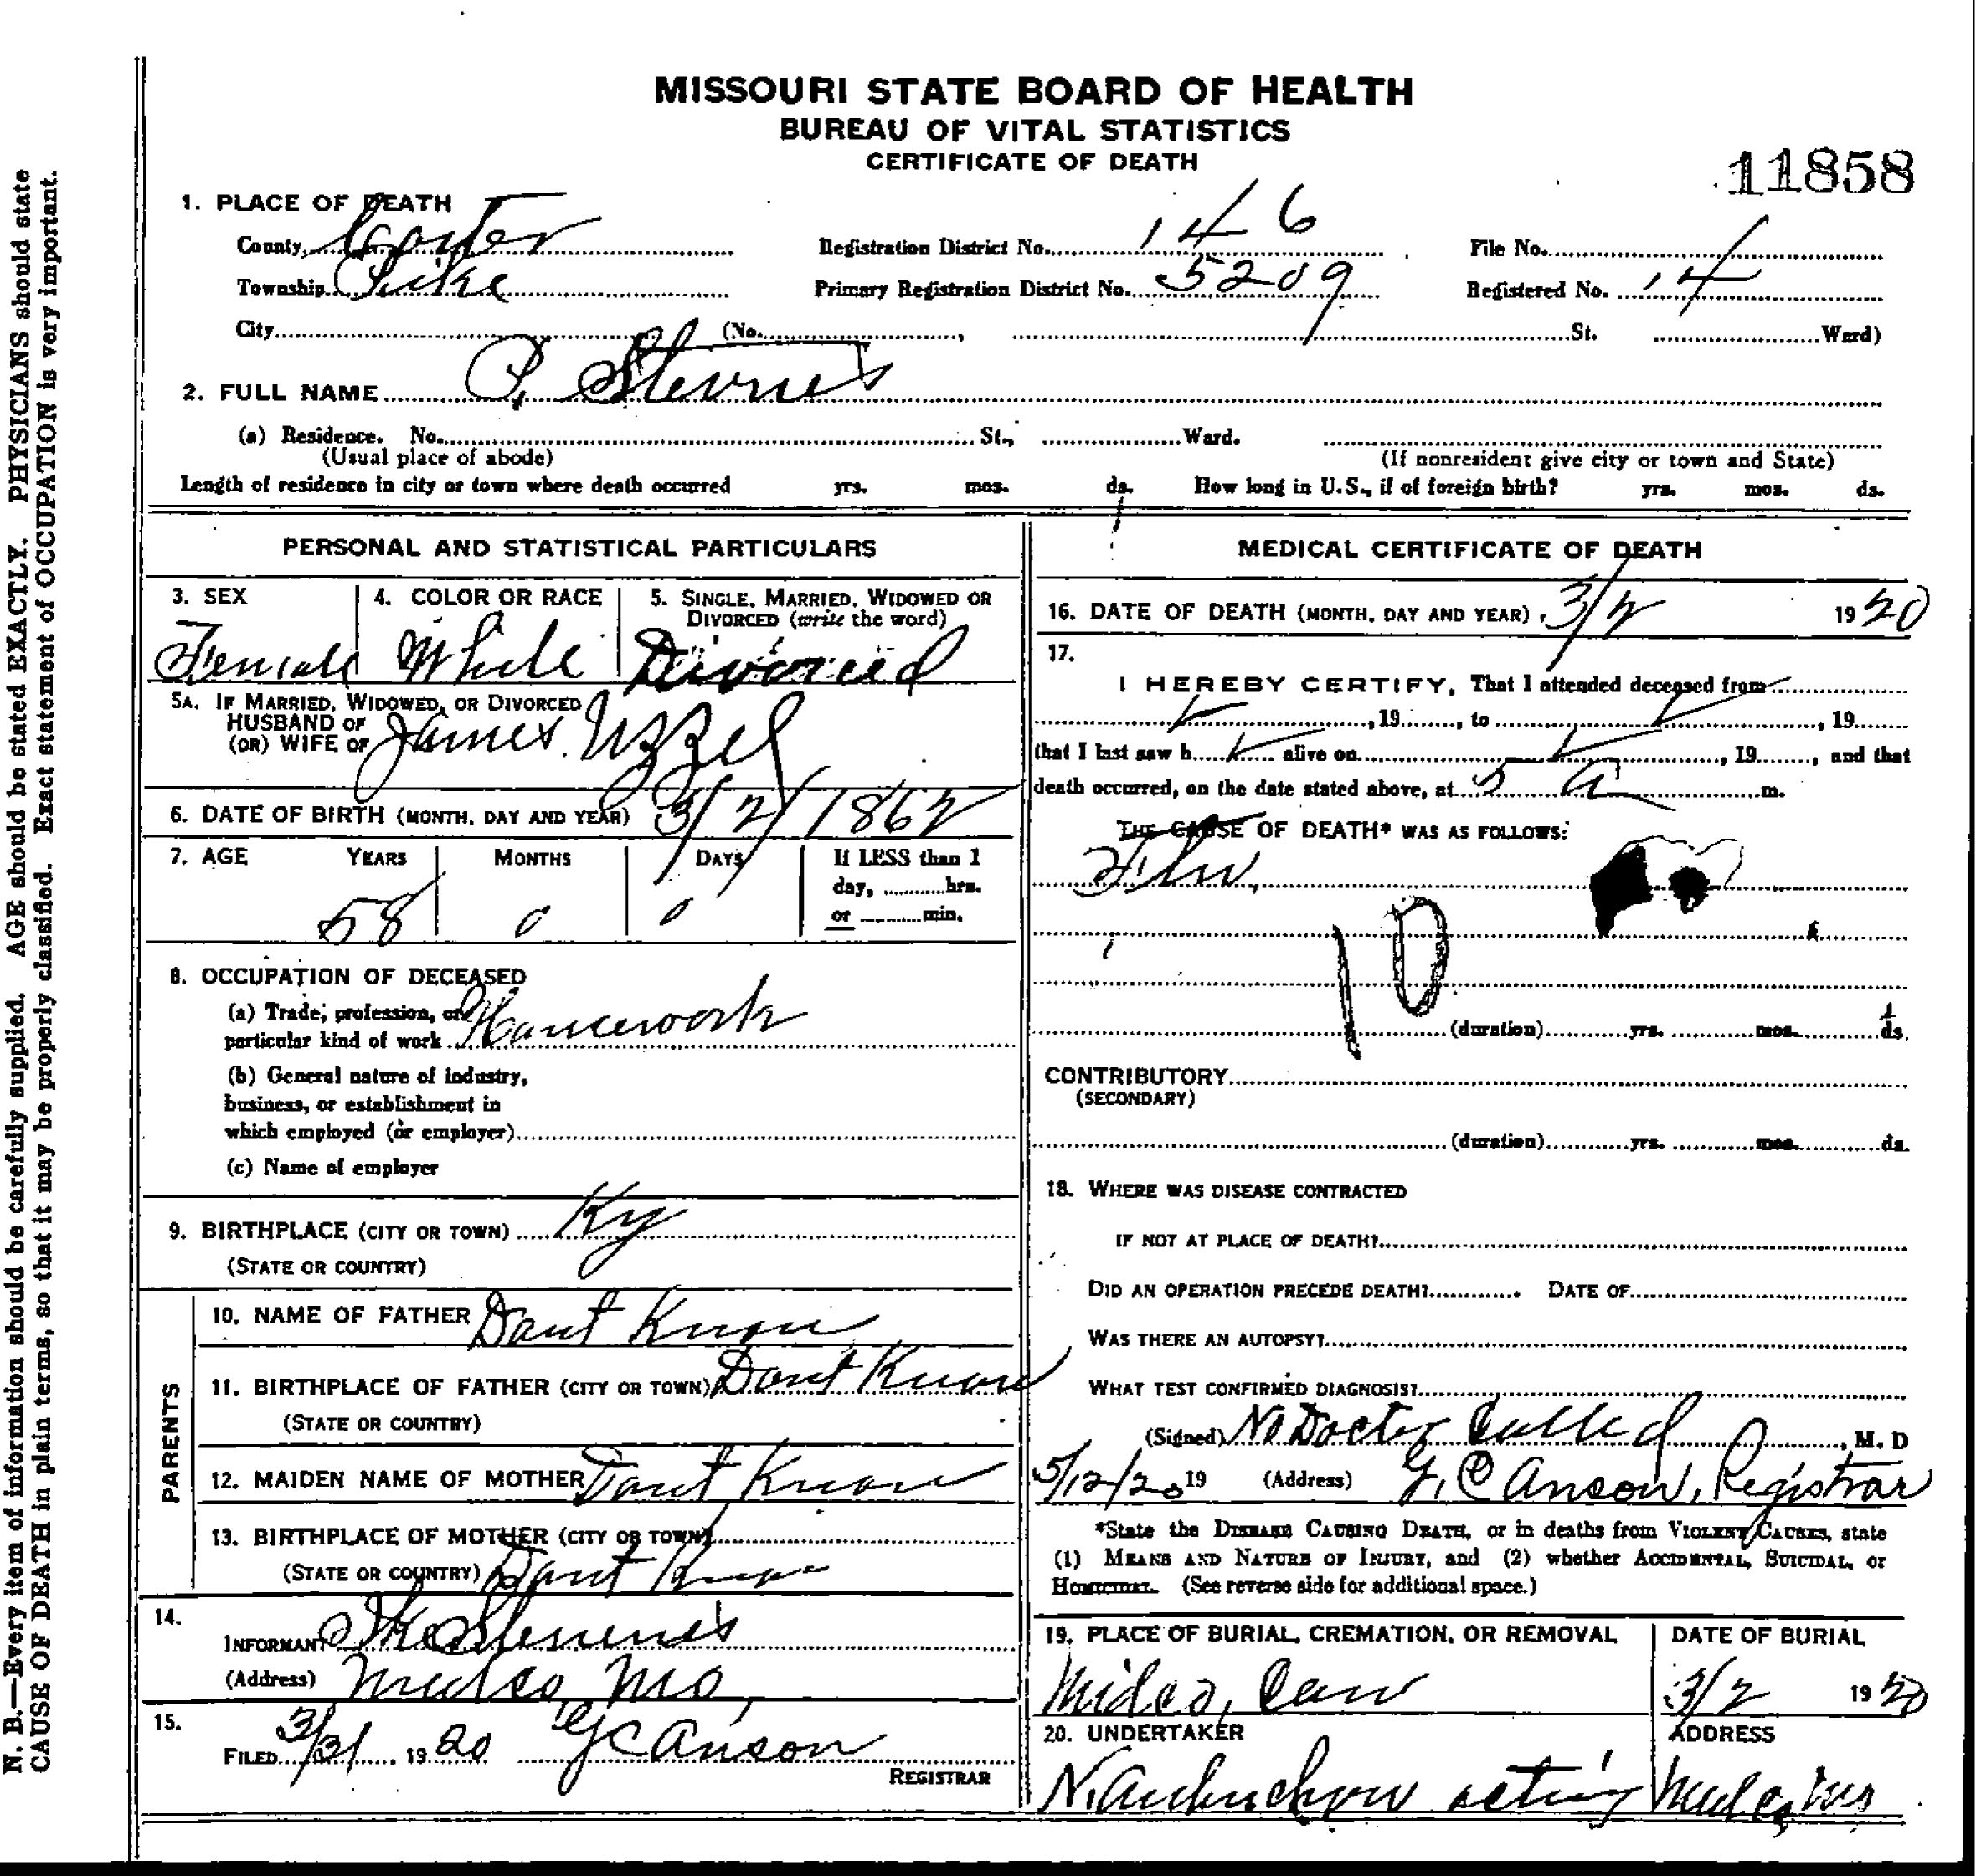 MISSOURI STATE BOARD OF HEALTH
BUREAU OF VITAL STATISTICS
CERTIFICATE OF DEATH
11858
1. PLACE OF DEATH
County Carter Registration District No. 146 File No.
Township Pike Primary Registration District No. 5209 Registered No. 14
City (No. , St. Ward)
2. FULL NAME P. Stevens
(a) Residence. No. St., Ward.
(Usual place of abode) (If nonresident give city or town and State)
Length of residence in city or town where death occurred yrs. mos. ds. How long in U.S., if of foreign birth? yrs. mos. ds.
PERSONAL AND STATISTICAL PARTICULARS
3. SEX 4. COLOR OR RACE 5. SINGLE, MARRIED, WIDOWED OR DIVORCED (write the word)
Female White Divorced
5A. IF MARRIED, WIDOWED, OR DIVORCED
HUSBAND OF
(OR) WIFE OF James Uzzel
6. DATE OF BIRTH (MONTH, DAY AND YEAR) 3/2/1862
7. AGE YEARS MONTHS DAYS If LESS than 1
day, hrs.
or min.
58 0 0
8. OCCUPATION OF DECEASED
(a) Trade, profession, or
particular kind of work Housework
(b) General nature of industry,
business, or establishment in
which employed (or employer)
(c) Name of employer
9. BIRTHPLACE (CITY OR TOWN) Ky
(STATE OR COUNTRY)
PARENTS
10. NAME OF FATHER Dont Know
11. BIRTHPLACE OF FATHER (CITY OR TOWN) Dont Know
(STATE OR COUNTRY)
12. MAIDEN NAME OF MOTHER Dont Know
13. BIRTHPLACE OF MOTHER (CITY OR TOWN)
(STATE OR COUNTRY) Dont Know
14.
INFORMANT Ike Stevens
(Address) Midco Mo
15.
FILED 3/31, 1920 G C Anson
REGISTRAR
MEDICAL CERTIFICATE OF DEATH
16. DATE OF DEATH (MONTH, DAY AND YEAR) 3/2 1920
17.
I HEREBY CERTIFY, That I attended deceased from
, 19 , to , 19
that I last saw h alive on , 19 , and that
death occurred, on the date stated above, at 5 a m.
THE CAUSE OF DEATH* WAS AS FOLLOWS:
Flu
10
(duration) yrs. mos. ds.
CONTRIBUTORY
(SECONDARY)
(duration) yrs. mos. ds.
18. WHERE WAS DISEASE CONTRACTED
IF NOT AT PLACE OF DEATH?
DID AN OPERATION PRECEDE DEATH? DATE OF
WAS THERE AN AUTOPSY?
WHAT TEST CONFIRMED DIAGNOSIS?
(Signed) No Doctor Called, M. D
5/12/20 19 (Address) G. C Anson, Registrar
*State the DISEASE CAUSING DEATH, or in deaths from VIOLENT CAUSES, state
(1) MEANS AND NATURE OF INJURY, and (2) whether ACCIDENTAL, SUICIDAL, or
HOMICIDAL. (See reverse side for additional space.)
19. PLACE OF BURIAL, CREMATION, OR REMOVAL DATE OF BURIAL
Midco, Cem 3/2 1920
20. UNDERTAKER ADDRESS
N. Aubuchon acting Midco, Mo
N. B.—Every item of information should be carefully supplied. AGE should be stated EXACTLY. PHYSICIANS should state
CAUSE OF DEATH in plain terms, so that it may be properly classified. Exact statement of OCCUPATION is very important.